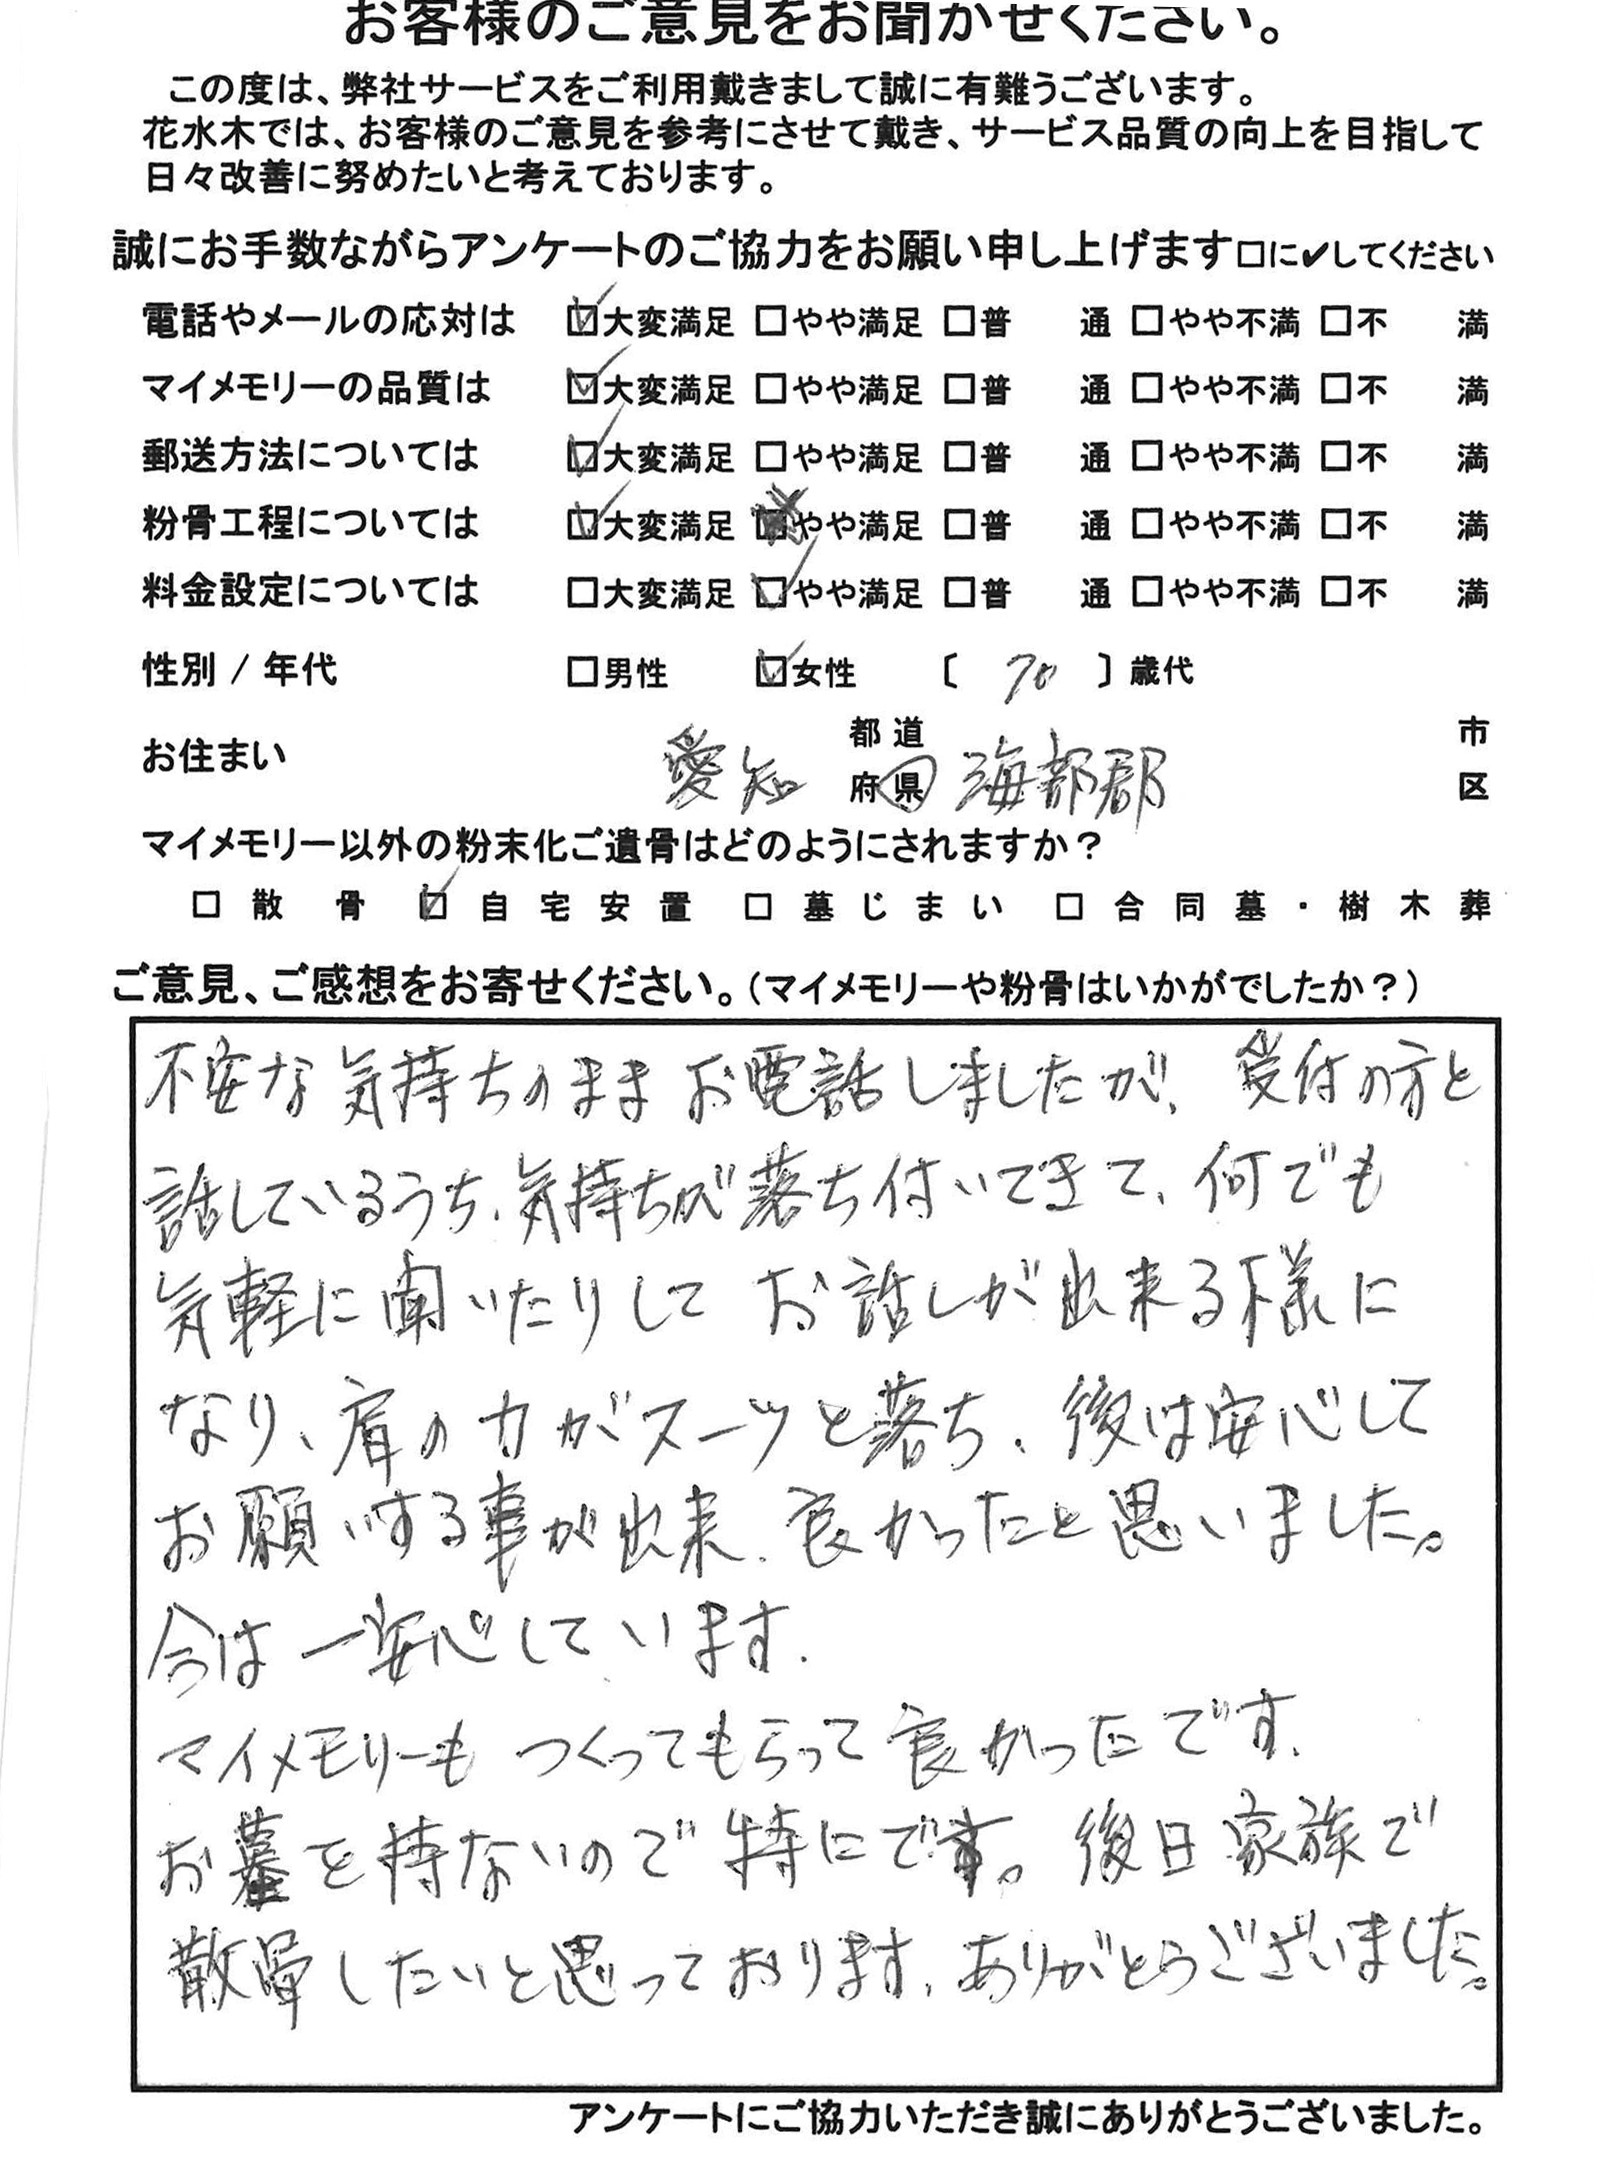 お客様のご意見をお聞かせください。
この度は、弊社サービスをご利用戴きまして誠に有難うございます。
花水木では、お客様のご意見を参考にさせて戴き、サービス品質の向上を目指して
日々改善に努めたいと考えております。
誠にお手数ながらアンケートのご協力をお願い申し上げます□に✔してください
電話やメールの応対は ☑大変満足 □やや満足 □普 通 □やや不満 □不 満
マイメモリーの品質は ☑大変満足 □やや満足 □普 通 □やや不満 □不 満
郵送方法については ☑大変満足 □やや満足 □普 通 □やや不満 □不 満
粉骨工程については ☑大変満足 ■やや満足 □普 通 □やや不満 □不 満
料金設定については □大変満足 ☑やや満足 □普 通 □やや不満 □不 満
性別 / 年代 □男性 ☑女性 〔 70 〕歳代
お住まい 愛知 都道府県 海部郡 市区
マイメモリー以外の粉末化ご遺骨はどのようにされますか？
□ 散骨 ☑ 自宅安置 □ 墓じまい □ 合同墓・樹木葬
ご意見、ご感想をお寄せください。（マイメモリーや粉骨はいかがでしたか？）
不安な気持ちのままお電話しましたが、受付の方と
話しているうち、気持ちが落ち付いてきて、何でも
気軽に聞いたりして お話しが出来る様に
なり、肩の力がスーッと落ち、後は安心して
お願いする事が出来、良かったと思いました。
今は一安心しています。
マイメモリーも つくってもらって良かったです。
お墓を持ないので特にです。後日家族で
散骨したいと思っております。ありがとうございました。
アンケートにご協力いただき誠にありがとうございました。